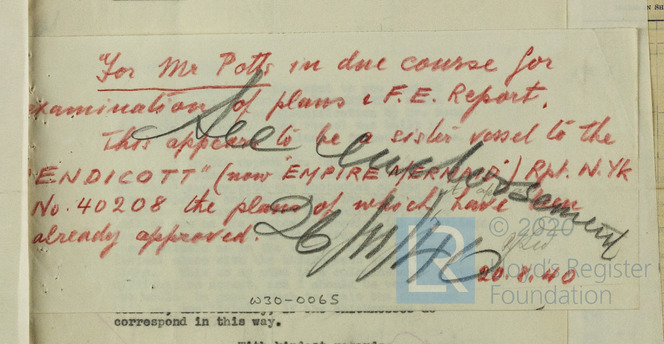 "For Mr Potts in due course for
examination of plans & F.E. Report.
This appears to be a sister vessel to the
"ENDICOTT" (now "EMPIRE MERMAID") Rpt. N.Yk
No. 40208 the plans of which have been
already approved.
See endorsement
20.8.40
© 2020
Lloyd's Register
Foundation
LR
W30-0065
correspond in this way.